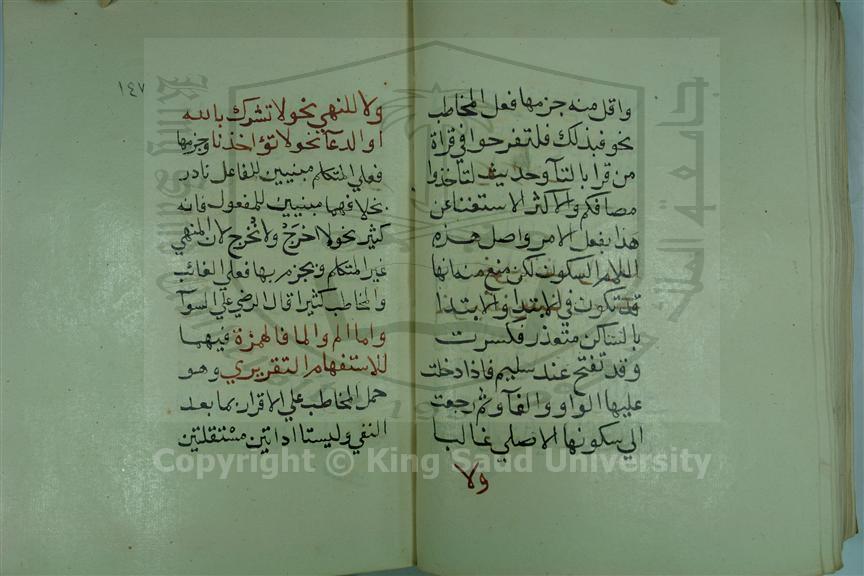 واقل منه جزمها فعل المخاطب
نحو فبذلك فلتفرحوا في قراة
من قرا بالتآ وحديث لتأخذوا
مصافكم والاكثر الاستغنا عن
هذا بفعل الامر واصل هذه
اللام السكون لكن منع منه انها
قد تكون في الابتدا والابتدا
بالساكن متعذر فكسرت
وقد تفتح عند سليم فاذا دخلت
عليها الواو والفآ وثم رجعت
الي سكونها الاصلي غالبا
ولا
١٤٧
ولا للنهي نحو لا تشرك بالله
او الدعآ نحو لا تؤاخذنا وجزمها
فعلي المتكلم مبنيين للفاعل نادر
بخلافهما مبنيين للمفعول فانه
كثير نحو لا اخرج ولا نخرج لان المنهي
غير المتكلم ويجزم بها فعلي الغائب
والمخاطب كثيرا قال الرضي علي السوآ
واما الم والما فالهمزة فيهما
للاستفهام التقريري وهو
حمل المخاطب علي الاقرار بما بعد
النفي وليستا اداتين مستقلتين
جامعة الملك سعود
1957
Copyright © King Saud University